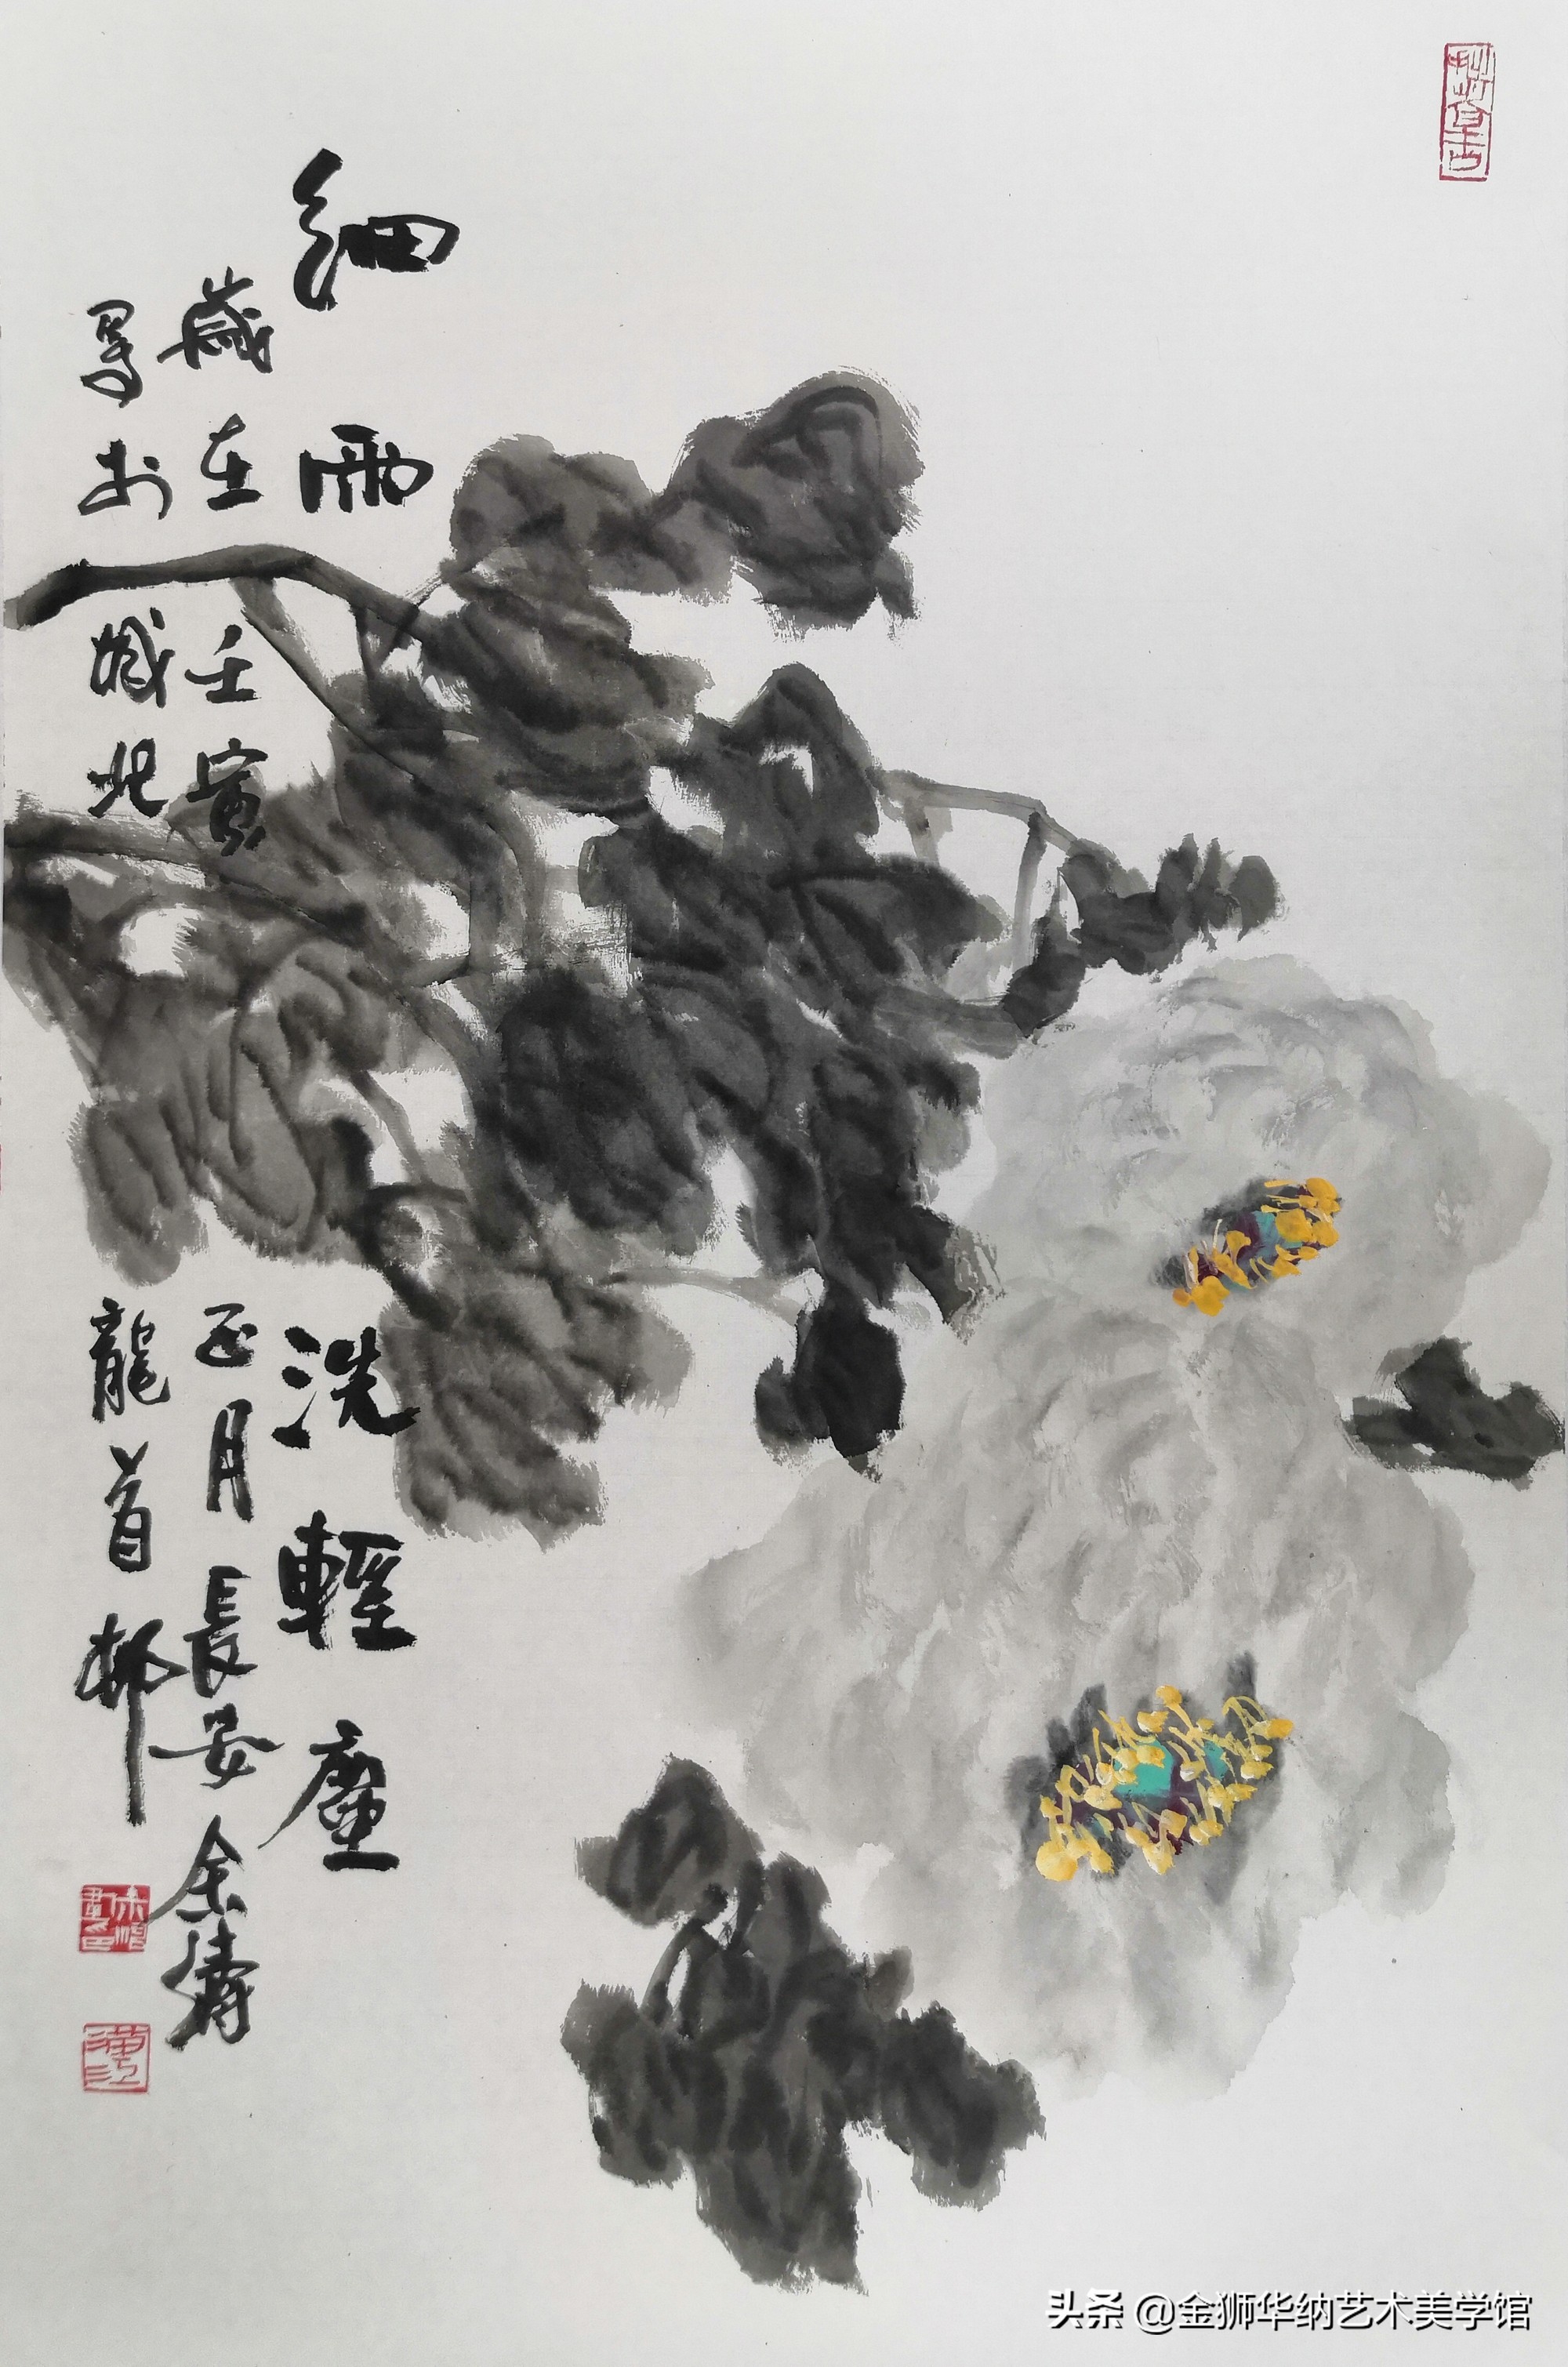 細雨洗輕塵
歲在壬寅正月長安余濤
写於城北龍首邨
头条 @金狮华纳艺术美学馆